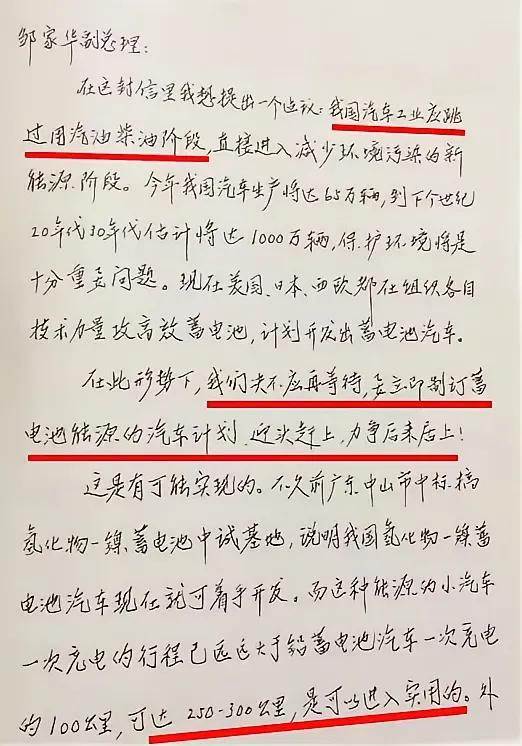 邹家华副总理：
在这封信里我想提出一个建议：我国汽车工业应跳
过用汽油柴油阶段，直接进入减少环境污染的新
能源阶段。今年我国汽车生产将达65万辆，到下个世纪
20年代30年代估计将达1000万辆，保护环境将是
十分重要问题。现在美国、日本、西欧都在组织各自
技术力量攻高效蓄电池，计划开发出蓄电池汽车。
在此形势下，我们决不应再等待，要立即制订蓄
电池能源的汽车计划，迎头赶上，力争后来居上！
这是有可能实现的。不久前广东中山市中标搞
氢化物—镍蓄电池中试基地，说明我国氢化物—镍蓄
电池汽车现在就可着手开发。而这种能源的小汽车
一次充电的行程已远远大于铅蓄电池汽车一次充电
的100公里，可达250-300公里，是可以进入实用的。外